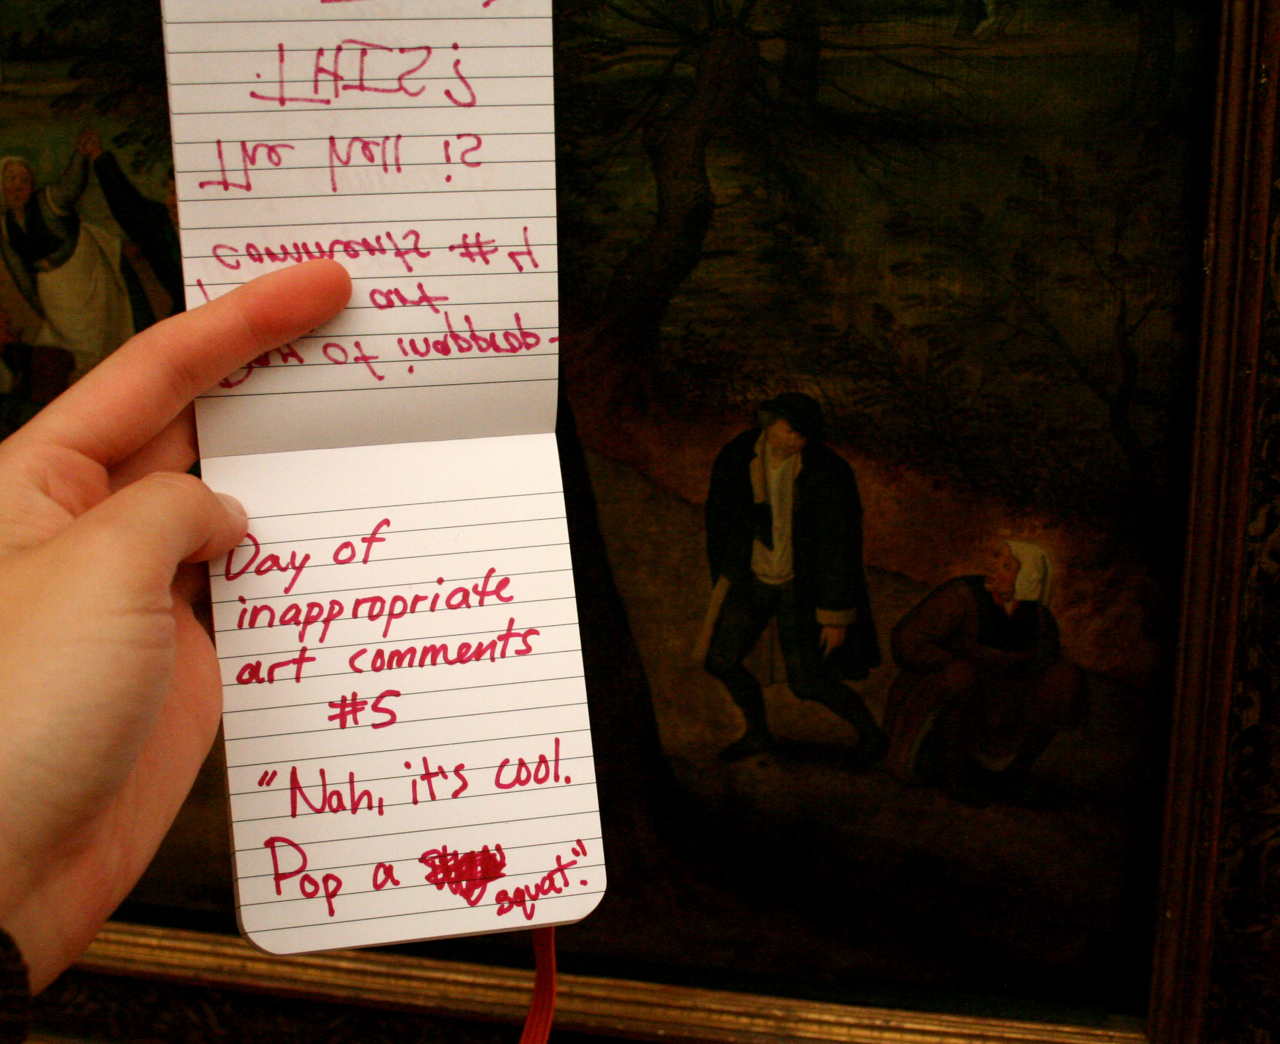 of inapprop-
art
comments #4
The hell is
THIS?
Day of
inappropriate
art comments
#5
"Nah, it's cool.
Pop a squat."